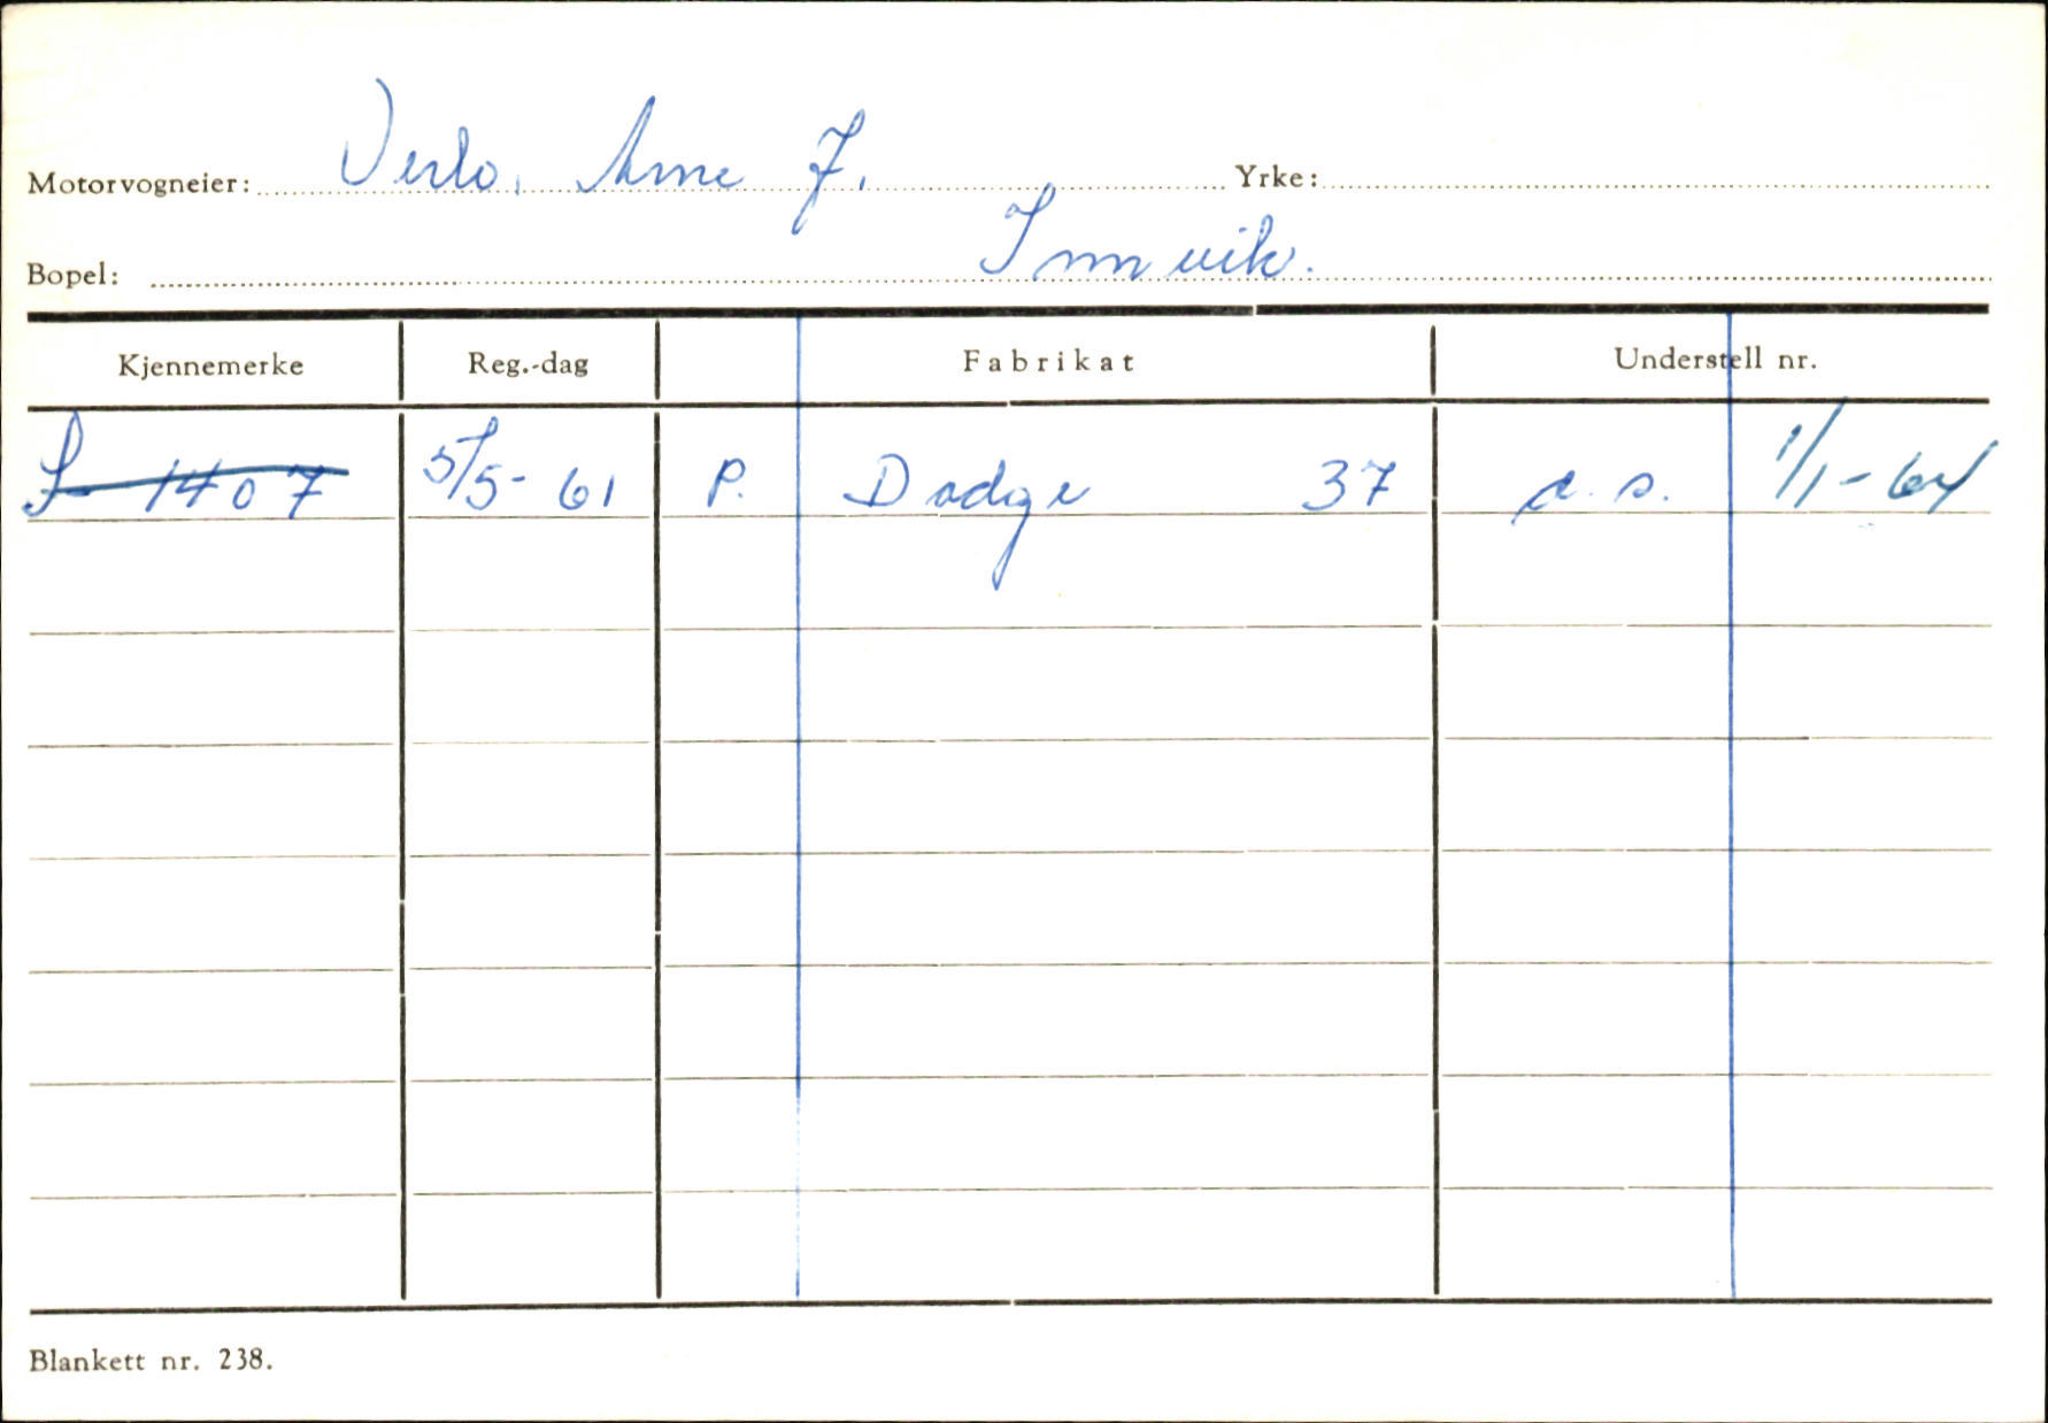 Motorvogneier: Verlo, Arne J. Yrke:
Bopel: Innvik.
Kjennemerke Reg.-dag Fabrikat Understell nr.
S 1407 5/5-61 P. Dodge 37 a. s. 1/1-64
Blankett nr. 238.